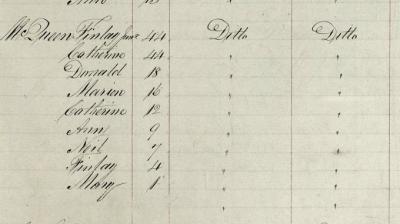 McQueen Finlay Junr 44 Ditto Ditto
Catherine 44 " "
Donald 18 " "
Marion 16 " "
Catherine 12 " "
Ann 9 " "
Neil 7 " "
Finlay 4 " "
Mary 1 " "